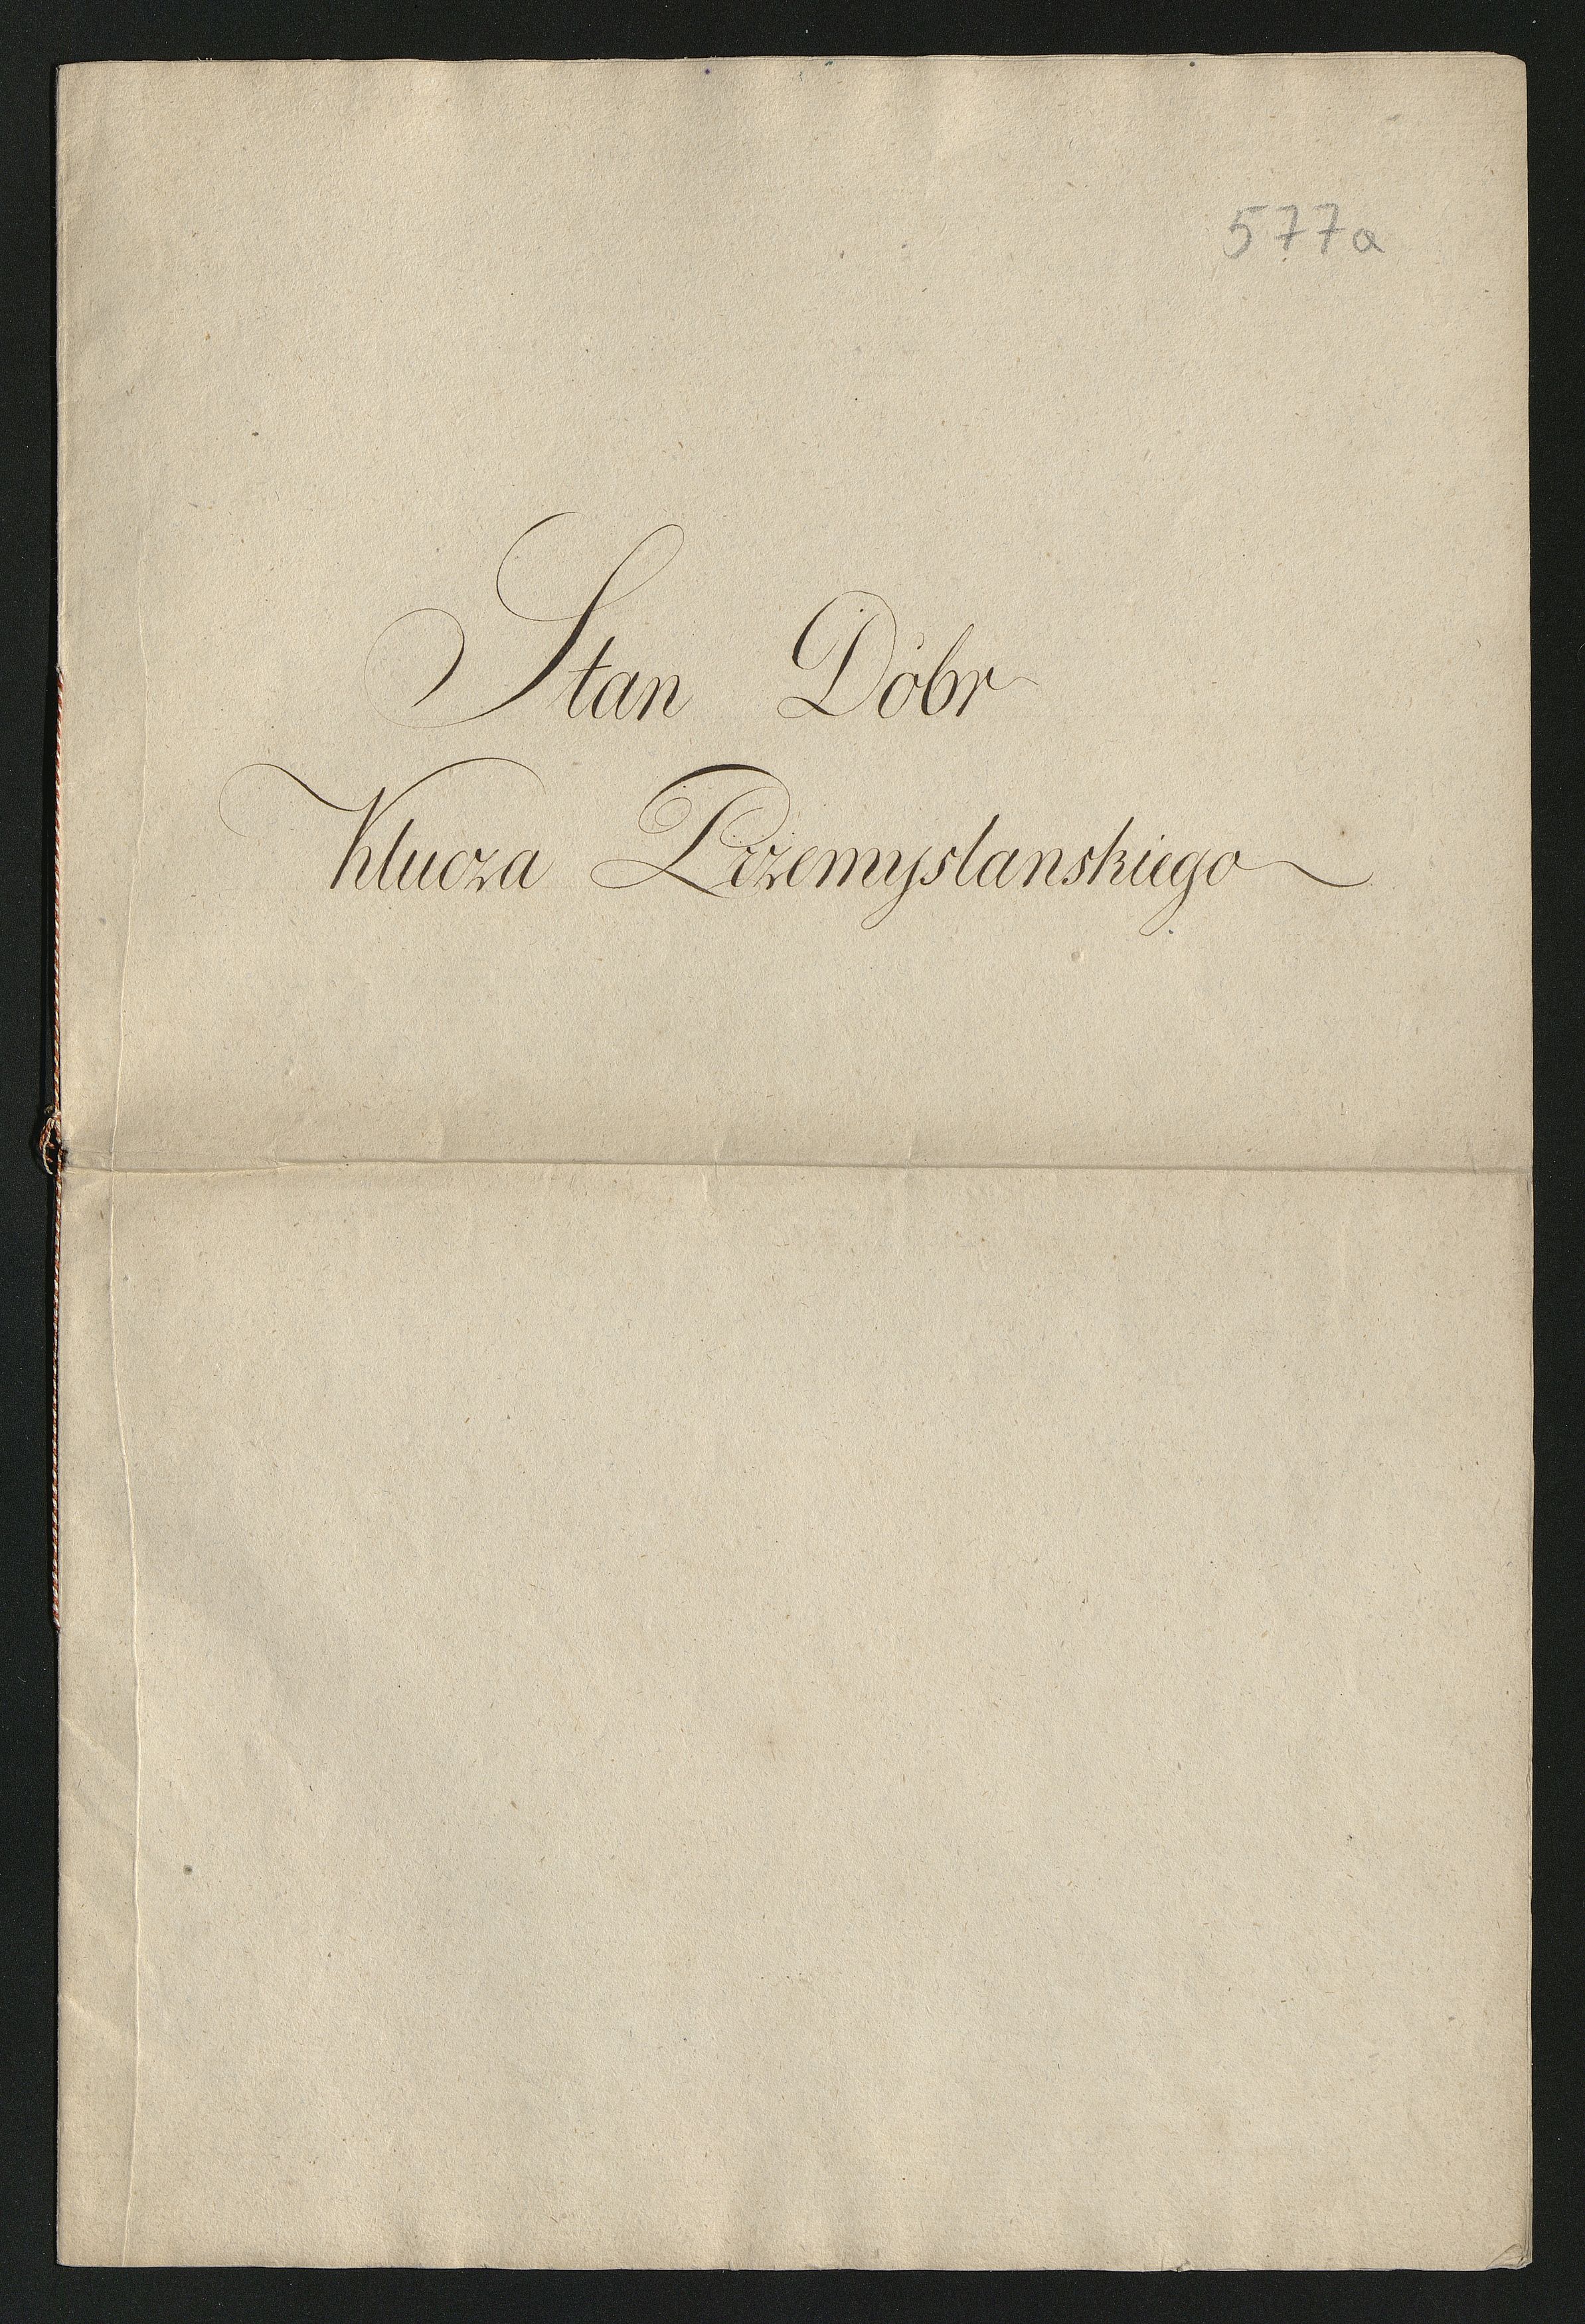 577a
Stan Dóbr
Klucza Przemyslanskiego